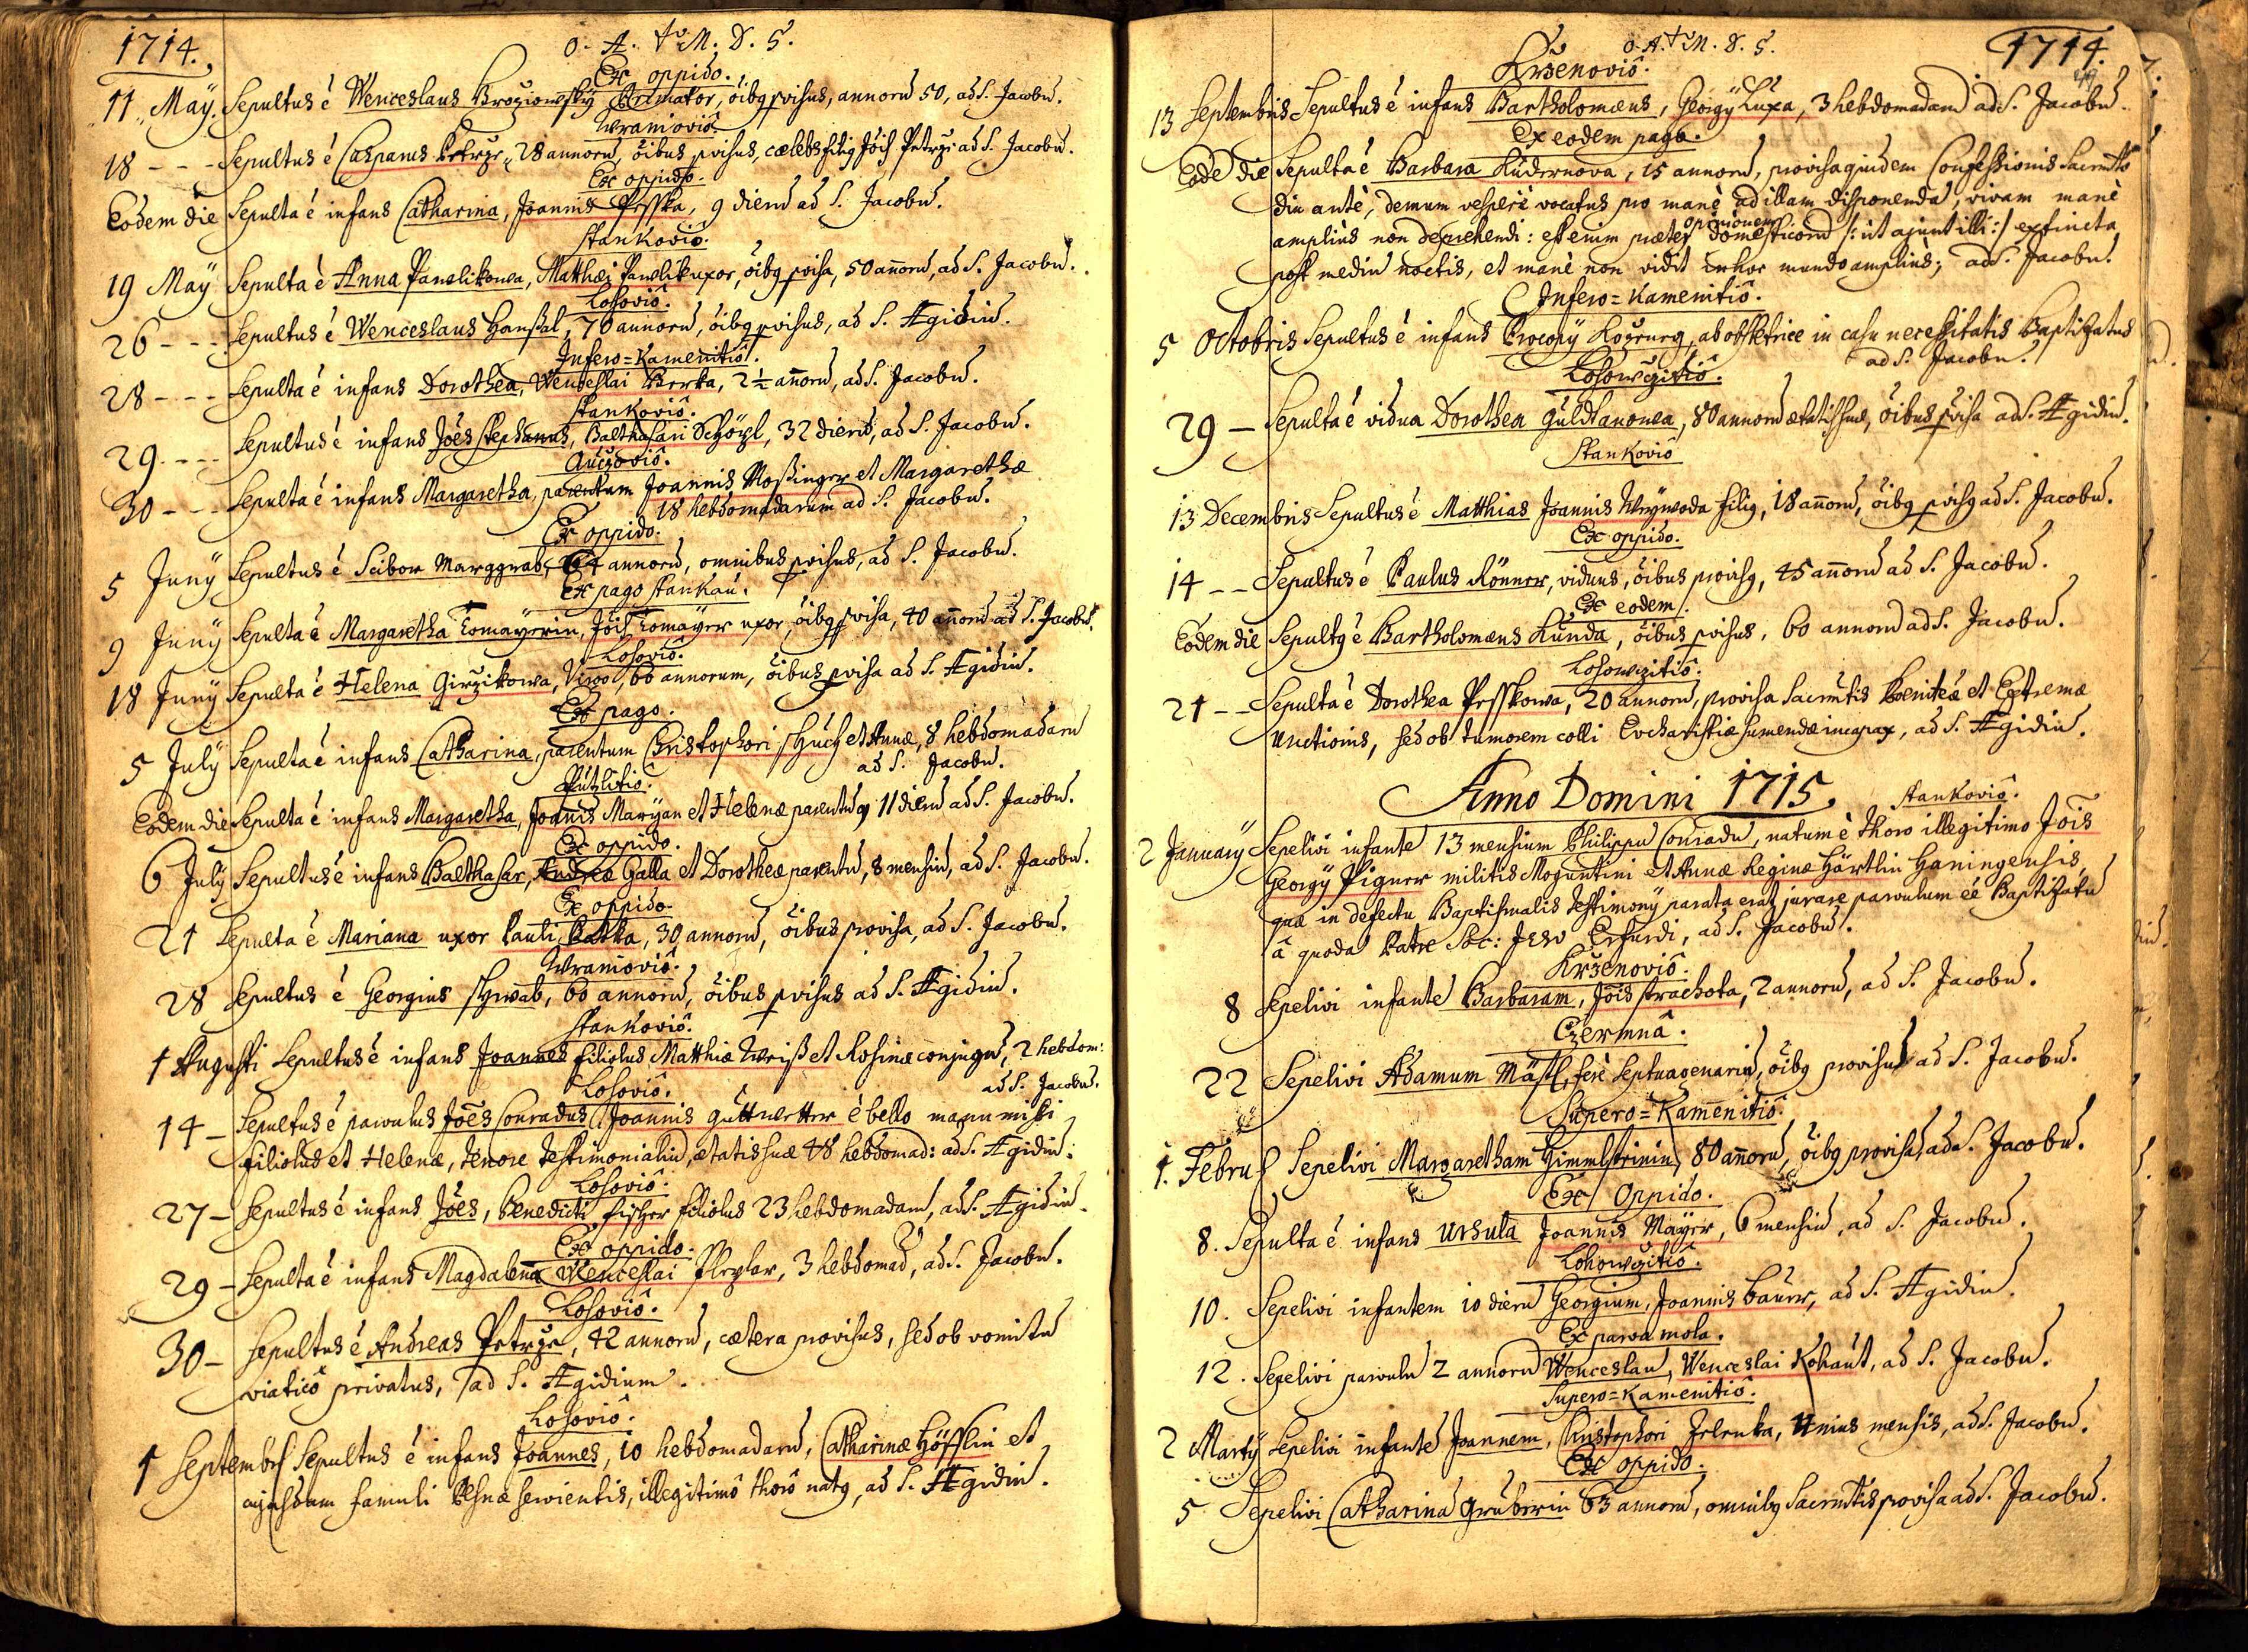 1714.
O. A. M. D. S.
Ex oppido.
11 Maÿ. Sepultus ê Wenceslaus Broziowskÿ Animator, õibq pvisus, annorũ 50, ad S. Jacobũ.
Wraniovio.
18 --- Sepultus ê Casparus Petrze, 28 annorũ, õibus pvisus, cælebs filiq Jõis Petrzi ad S. Jacobũ.
Ex oppido.
Eodem die Sepulta ê infans Catharina, Joannis Prsska, 9 dierũ ad S. Jacobũ.
Stankoviô.
19 Maÿ Sepulta ê Anna Pawlikowa, Matthæi Pawlik uxor, õibq pvisa, 50 añorũ, ad S. Jacobũ.
Losoviô.
26 --- Sepultus ê Wenceslaus Hanßal, 70 annorũ, õibq pvisus, ad S. Ægidiũ.
Infero=Kamenitiô.
28 --- Sepulta ê infans Dorothea, Wenceslai Berka, 2½ añorũ, ad S. Jacobũ.
Stankoviô.
29 --- Sepultus ê infans Jões Stephanus, Balthasari Schözl, 32 dierũ, ad S. Jacobũ.
Auczoviô.
30 --- Sepulta ê infans Margaretha, parentum Joannis Moßinger et Margarethæ
18 hebdomadarum ad S. Jacobũ.
Ex oppido.
5 Junÿ Sepultus ê Scibor Marggrab, 64 annorũ, omnibus pvisus, ad S. Jacobũ.
Ex pago Stankau.
9 Junÿ Sepulta ê Margaretha Tomaÿerin, Jõis Tomaÿer uxor, õibq pvisa, 40 añorũ ad S. Jacobũ.
Losoviô.
18 Junÿ Sepulta ê Helena Girzikowa, Virgo, 60 annorum, õibus pvisa ad S. Ægidiũ.
Ex pago.
5 Julÿ Sepulta ê infans Catharina, parentum Christophori Schuch et Annæ, 8 hebdomadarũ
ad S. Jacobũ.
Putzlitiô.
Eodem die Sepulta ê infans Margaretha, Joañis Marÿan et Helenæ parentũ 11 dierũ ad S. Jacobũ.
Ex oppido.
6 Julÿ Sepultus ê infans Balthasar, Andreæ Galla et Dorotheæ parentũ, 8 mensiũ, ad S. Jacobũ.
Ex oppido.
21 Sepulta ê Mariana uxor Pauli Patka, 30 annorũ, õibus provisa, ad S. Jacobũ.
Wranioviô.
28 Sepultus ê Georgius Schwab, 60 annorũ, õibus pvisus ad S. Ægidiũ.
Stankoviô.
1 Augusti Sepultus ê infans Joannes filiolus Matthiæ Weiß et Rosinæ conjugũ, 2 hebdom:
ad S. Jacobũ.
Losoviô.
14 — Sepultus ê parvulus Jões Conradus Joannis Guttwetter ê bello manu missi
filiolus et Helenæ, tenore testimonialiũ, ætatis suæ 48 hebdomad: ad S. Ægidiũ.
Losoviô.
27 — Sepultus ê infans Jões, Benedicti Fischer filiolus 23 hebdomadarũ, ad S. Ægidiũ.
Ex oppido.
29 — Sepulta ê infans Magdalena Wenceslai Flezlar, 3 hebdomad, ad S. Jacobũ.
Losoviô.
30 — Sepultus ê Andreas Petrze, 42 annorũ, cætera provisus, sed ob vomitũ
viaticô privatus, ad S. Ægidium.
Losoviô.
1 Septembris Sepultus ê infans Joannes, 10 hebdomadarũ, Catharinæ Höfflin et
cujusdam famuli servientis, illegitimô thorô natq, ad S. Ægidiũ.
O. A. M. D. S.
1714.
49
Krzenoviô.
13 Septembris Sepultus ê infans Bartholomæus, Georgÿ Luxa, 3 hebdomadarũ ad S. Jacobũ.
Ex eodem pago.
Eodẽ die Sepulta ê Barbara Kudernova, 15 annorũ, provisa quidem Confessionis Sacramto
diu antè, demum vesperè vocatus pro manè ad illam disponendã, vivam manè
amplius non deprehendi: est enim præter opinionem domesticorũ /: ut ajunt illi :/ extincta
post mediũ noctis, et manè non vidit in hoc mundo amplius; ad S. Jacobũ.
Infero=Kamenitiô.
5 Octobris Sepultus ê infans Procopÿ Kozrurg, ab obstetrice in casu necessitatis Baptizatus
ad S. Jacobũ.
Losowczitiô.
29 — Sepulta ê vidua Dorothea Guldanowa, 80 annorũ ætatis suæ, õibus pvisa ad S. Ægidiũ.
Stankoviô
13 Decembris Sepultus ê Matthias Joannis Weÿwoda filiq, 18 añorũ, õibq pvisq ad S. Jacobũ.
Ex oppido.
14 -- Sepultus ê Paulus Rönner, viduus, õibus provisq, 45 añorũ ad S. Jacobũ.
Ex eodem.
Eodem die Sepultq ê Bartholomæus Kunda, õibus pvisus, 60 annorũ ad S. Jacobũ.
Losowczitiô.
21 -- Sepulta ê Dorothea Prsskowa, 20 annorũ, provisa Sacramtis Pœniteæ et Extremæ
Unctionis, sed ob tumorem colli Eucharistiæ sumendæ incapax, ad S. Ægidiũ.
Anno Domini 1715.
Stankoviô.
2 Januarÿ Sepelivi infantẽ 13 mensium Philippũ Conradũ, natum è thoro illegitimo Jõis
Georgÿ Pigner militis Moguntini et Annæ Reginæ Härtlin Haningensis
quæ in defectu Baptismalis testimonÿ parata erat jurare parvulum eê Baptizatũ
â quodã Patre Soc: Jesu Erfurdi, ad S. Jacobũ.
Krzenoviô.
8 Sepelivi infantẽ Barbaram, Jõis Strachota, 2 annorũ, ad S. Jacobũ.
Czermnâ.
22 Sepelivi Adamum Mästl, ferè septuagenariũ, õibq provisus ad S. Jacobũ.
Supero=Kamenitiô.
1. Febru Sepelivi Margaretham Himmlstrinin, 80 añorũ, õibq provisã, ad S. Jacobũ.
Ex Oppido.
8. Sepulta ê infans Ursula Joannis Maÿer, 6 mensiũ, ad S. Jacobũ.
Lohowczitiô.
10. Sepelivi infantem 10 dierũ Georgium, Joannis Baurr, ad S. Ægidiũ.
Ex parva mola.
12. Sepelivi parvulũ 2 annorũ Wenceslaũ, Wenceslai Kohaut, ad S. Jacobũ.
Supero=Kamenitiô.
2 Martÿ Sepelivi infantẽ Joannem, Christophori Jelenka, Unius mensis, ad S. Jacobũ.
Ex oppido.
5 Sepelivi Catharinã Gruberin 63 annorũ, omnibq Sacramtis provisa ad S. Jacobũ.